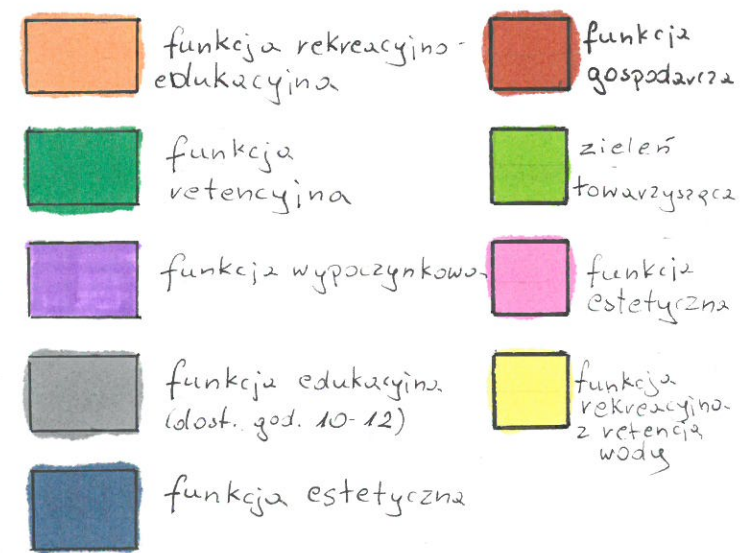 funkcja rekreacyjno-
edukacyjna
funkcja
retencyjna
funkcja wypoczynkowa
funkcja edukacyjna
(dost. god. 10-12)
funkcja estetyczna
funkcja
gospodarcza
zieleń
towarzysząca
funkcja
estetyczna
funkcja
rekreacyjna
z retencją
wody